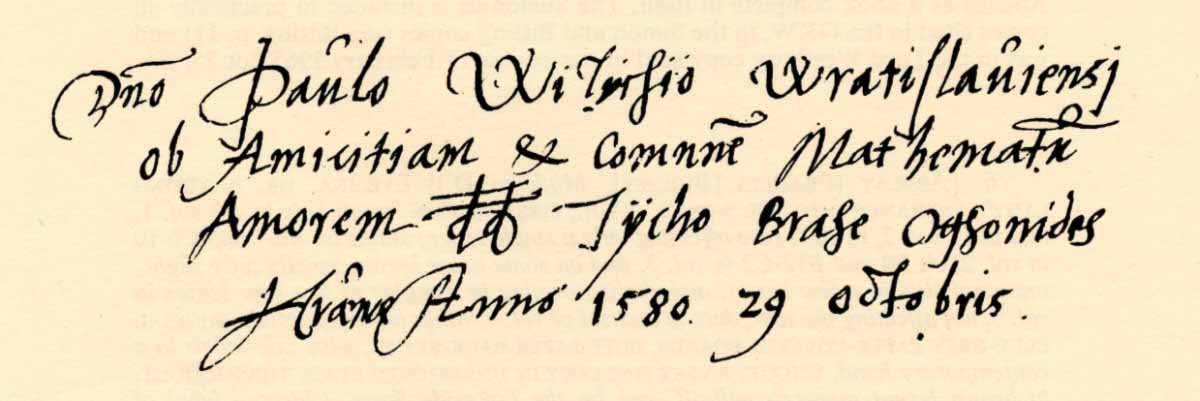 Dno Paulo Witichio Wratislauiensi
ob Amicitiam & Comunē Mathematū
Amorem dd Tÿcho Brahe Ottonides
Anno 1580. 29 octobris.